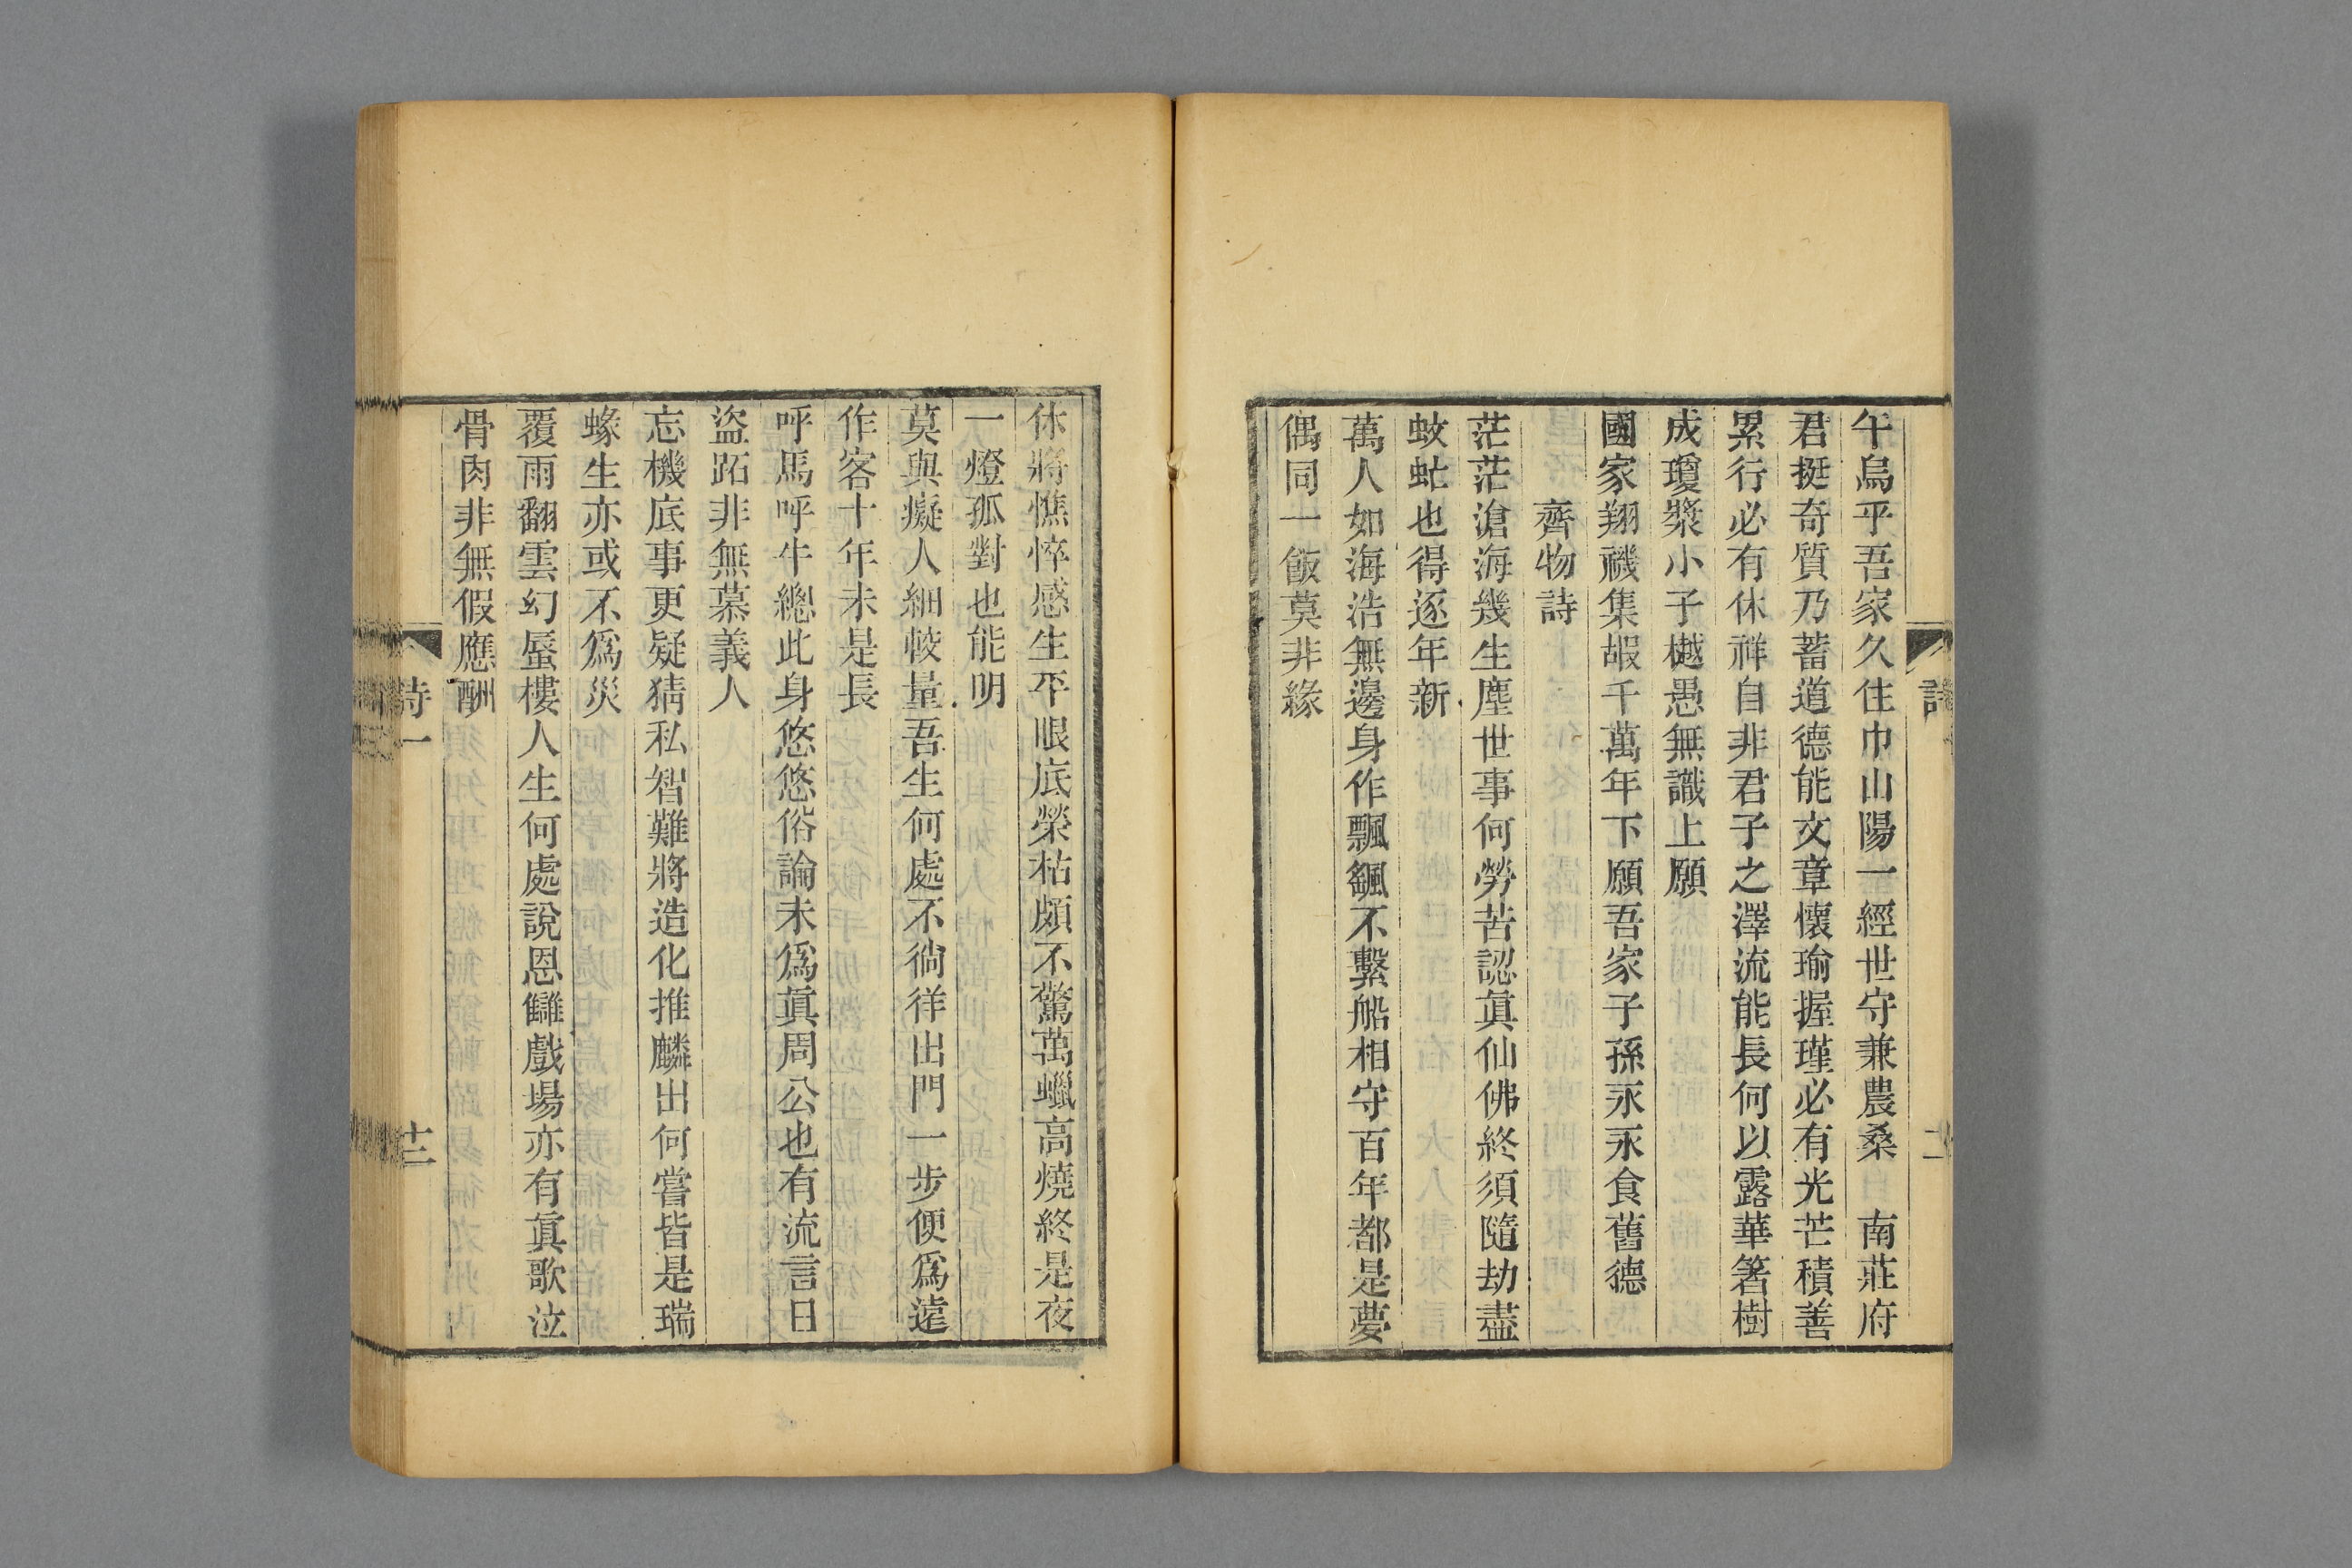 午烏乎吾家久住巾山陽一經世守兼農桑　南莊府
君挺奇質乃蓄道德能文章懷瑜握瑾必有光芒積善
累行必有休祥自非君子之澤流能長何以露華箸樹
成瓊漿小子樾愚無識上願
國家翔禨集嘏千萬年下願吾家子孫永永食舊德
齊物詩
茫茫滄海幾生塵世事何勞苦認眞仙佛終須隨劫盡
蚊虻也得逐年新
萬人如海浩無邊身作飄颻不繫船相守百年都是夢
偶同一飯莫非緣
休將憔悴感生平眼底榮枯頗不驚萬蠟高燒終是夜
一燈孤對也能明
莫與癡人細較量吾生何處不徜徉出門一步便爲遠
作客十年未是長
呼馬呼牛總此身悠悠俗論未爲眞周公也有流言日
盜跖非無慕義人
忘機底事更疑猜私智難將造化推麟出何嘗皆是瑞
蝝生亦或不爲災
覆雨翻雲幻蜃樓人生何處說恩讎戲場亦有眞歌泣
骨肉非無假應酬
詩一
十三